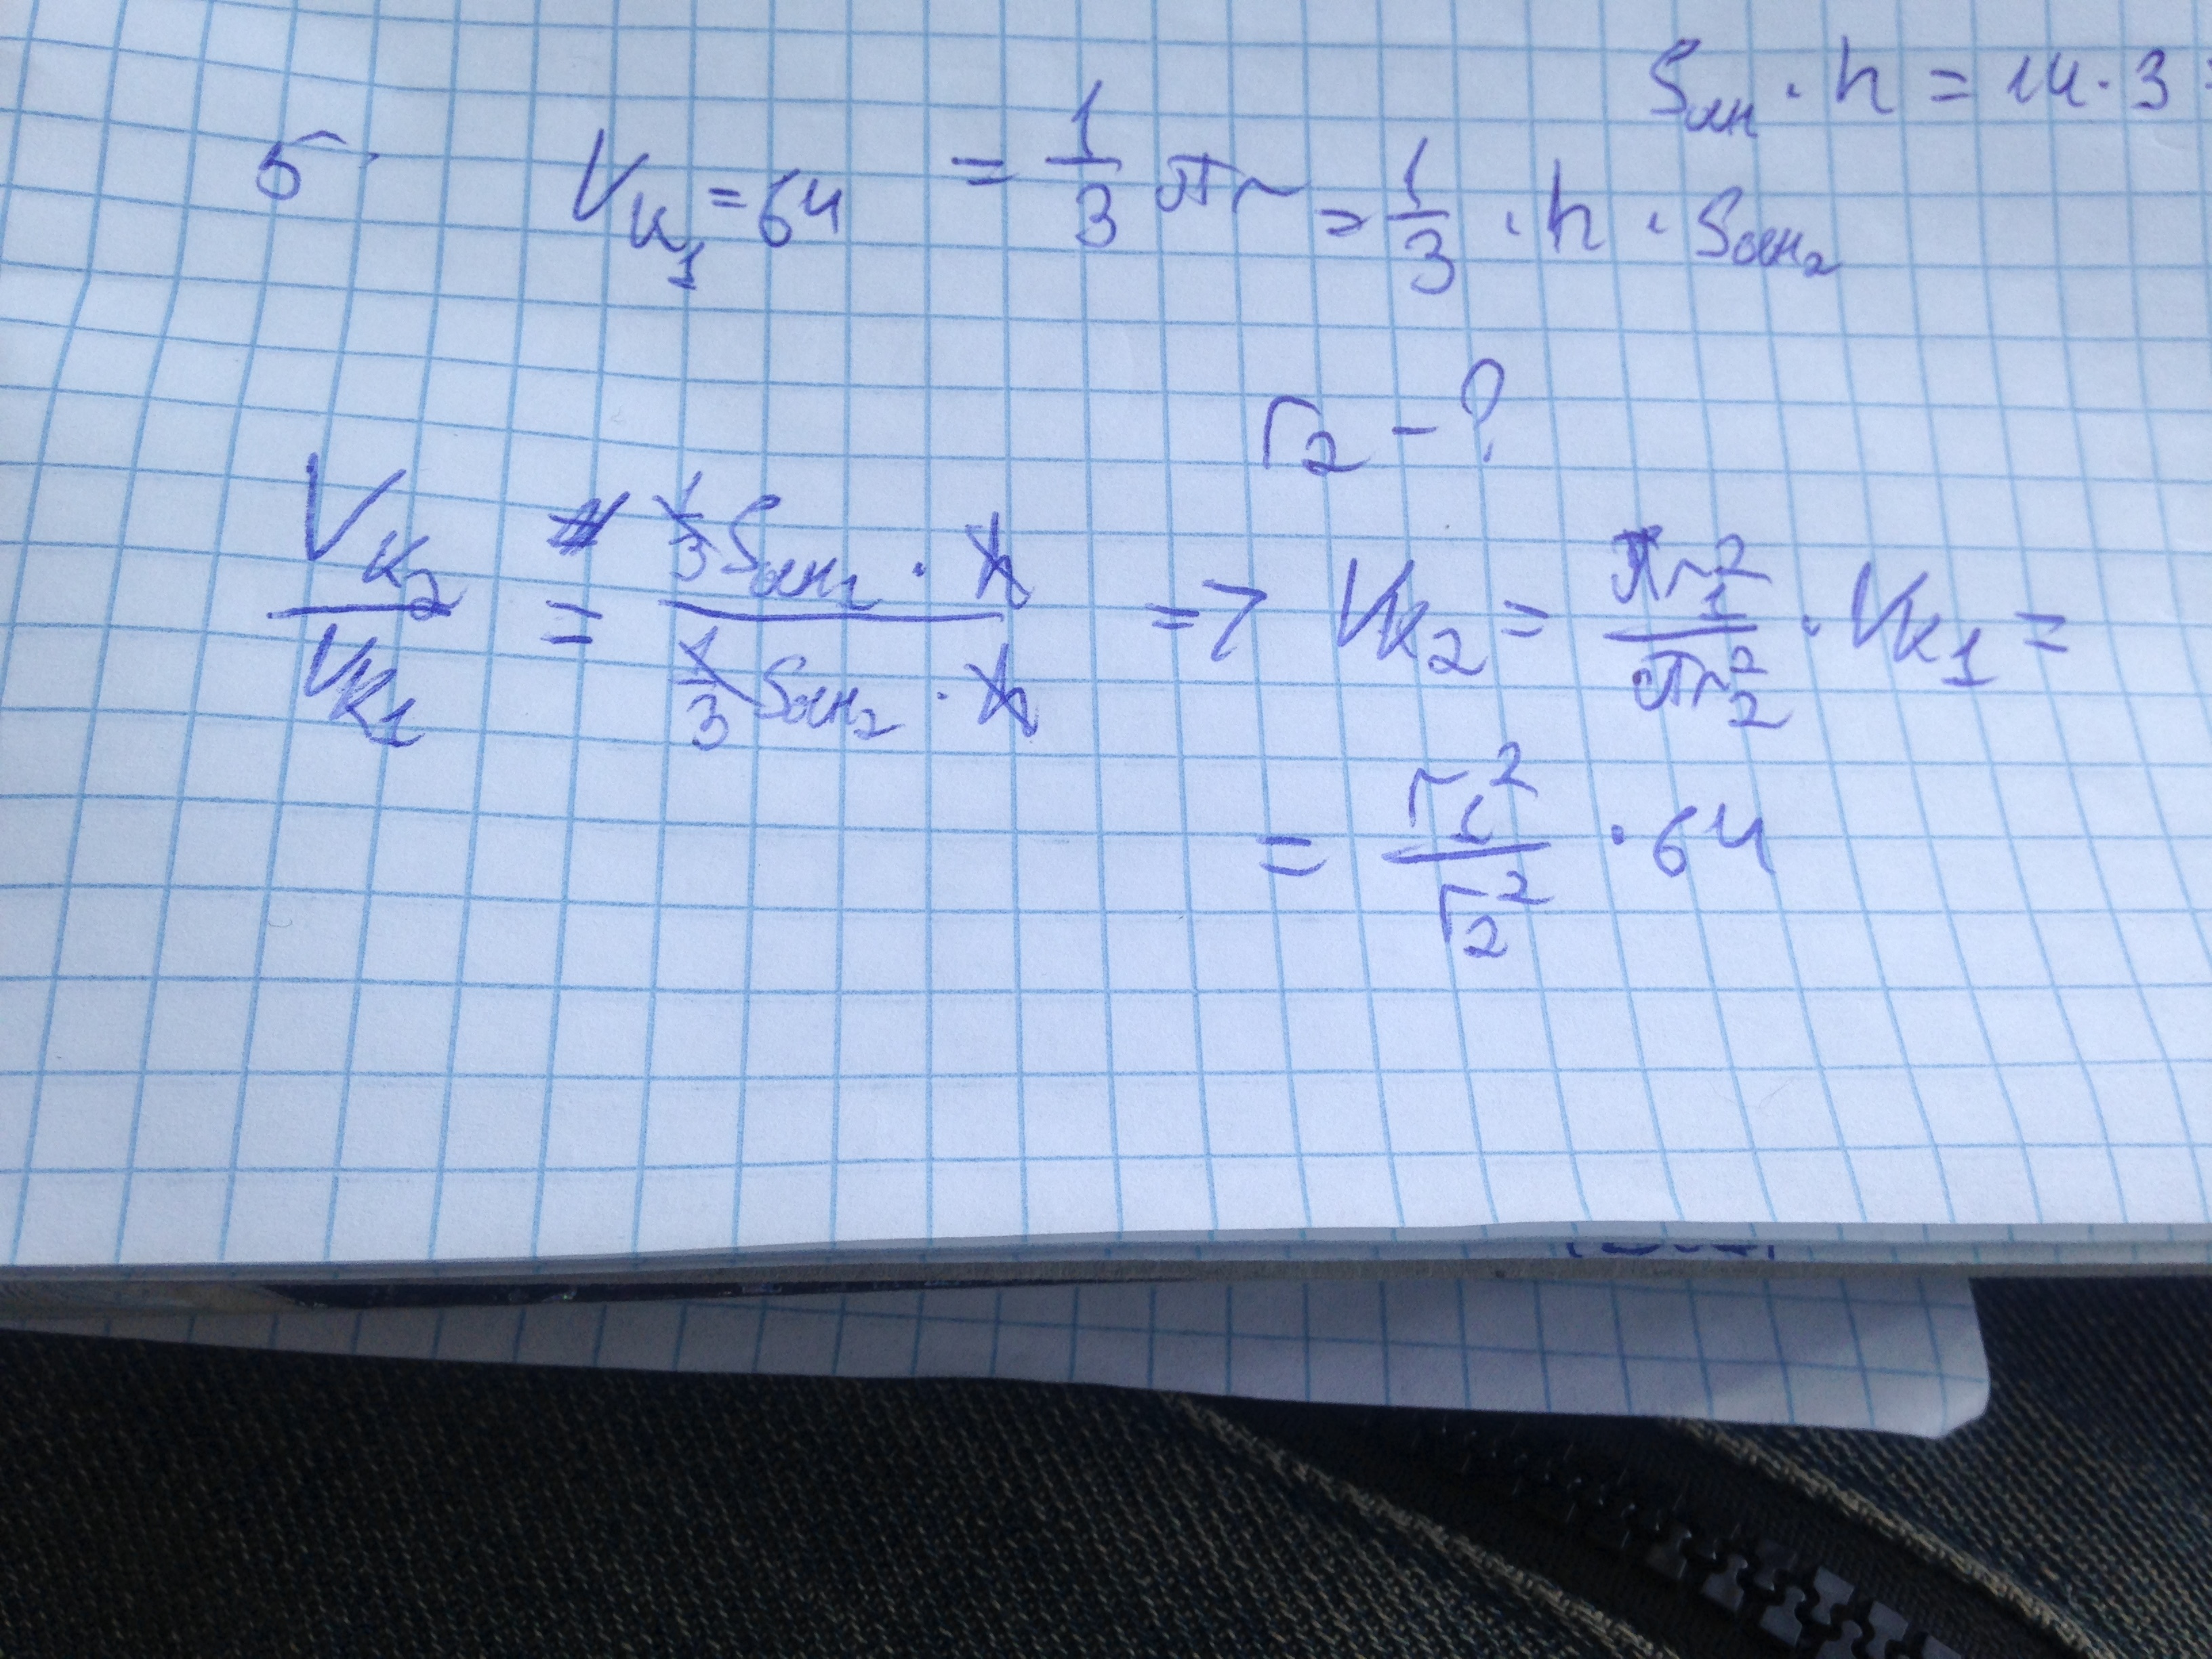 Sосн · h = 14 · 3 =
5. Vк₁ = 64 = 1/3 πr = 1/3 · h · Sосн₂
r₂ - ?
Vк₂/Vк₁ = (1/3 Sосн₁ · h)/(1/3 Sосн₂ · h) => Vк₂ = πr₁²/πr₂² · Vк₁ =
= r₁²/r₂² · 64